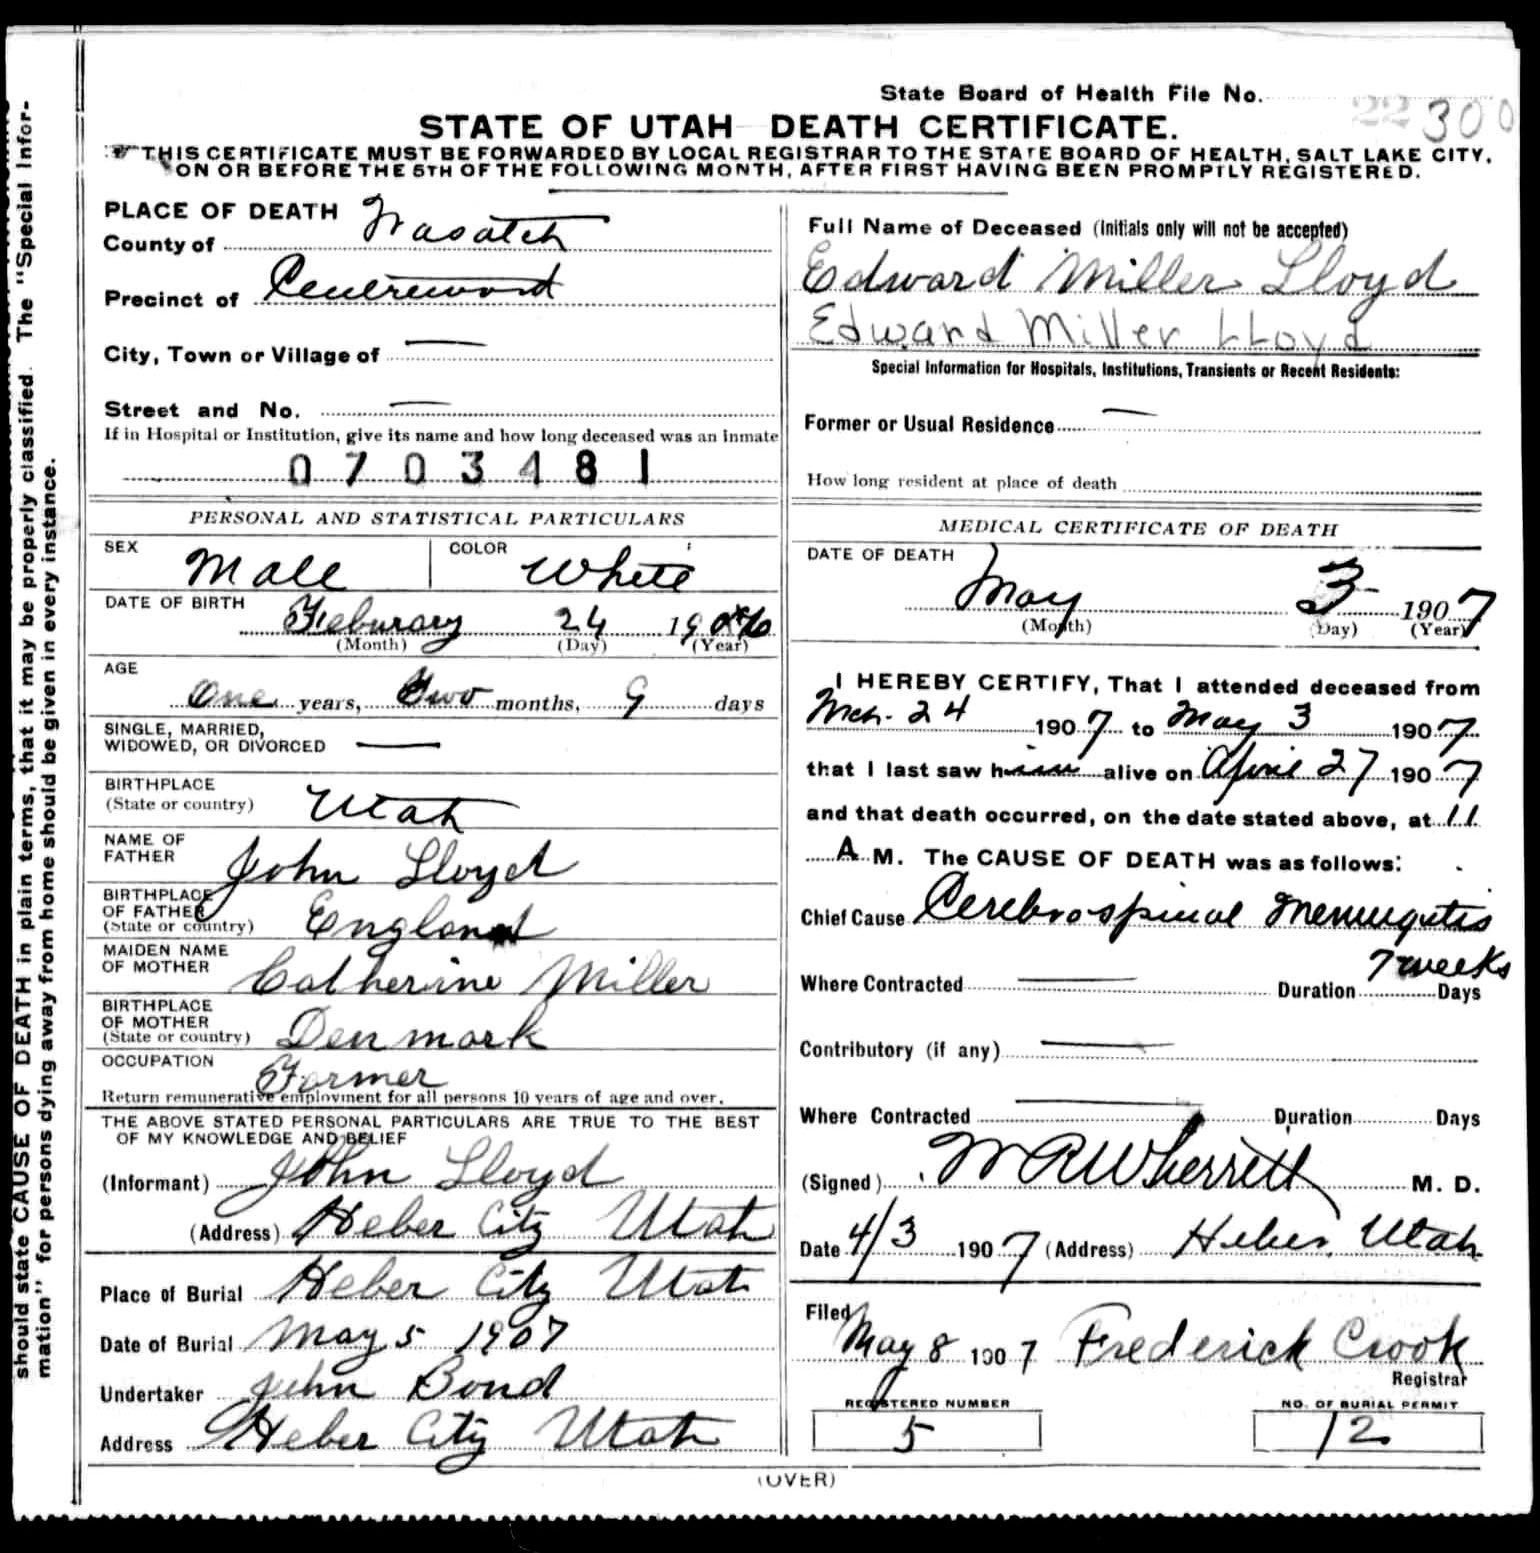 State Board of Health File No. 22 300
STATE OF UTAH DEATH CERTIFICATE.
THIS CERTIFICATE MUST BE FORWARDED BY LOCAL REGISTRAR TO THE STATE BOARD OF HEALTH, SALT LAKE CITY,
ON OR BEFORE THE 5TH OF THE FOLLOWING MONTH, AFTER FIRST HAVING BEEN PROMPTLY REGISTERED.
should state CAUSE OF DEATH in plain terms, that it may be properly classified. The "Special Infor-
mation" for persons dying away from home should be given in every instance.
PLACE OF DEATH
County of Wasatch
Precinct of
City, Town or Village of —
Street and No. —
If in Hospital or Institution, give its name and how long deceased was an inmate
0703481
PERSONAL AND STATISTICAL PARTICULARS
SEX Male COLOR White
DATE OF BIRTH Feburary 24 1906
(Month) (Day) (Year)
AGE
One years, Two months, 9 days
SINGLE, MARRIED,
WIDOWED, OR DIVORCED —
BIRTHPLACE
(State or country) Utah
NAME OF
FATHER John Lloyd
BIRTHPLACE
OF FATHER
(State or country) England
MAIDEN NAME
OF MOTHER Catherine Miller
BIRTHPLACE
OF MOTHER
(State or country) Denmark
OCCUPATION
Farmer
Return remunerative employment for all persons 10 years of age and over.
THE ABOVE STATED PERSONAL PARTICULARS ARE TRUE TO THE BEST
OF MY KNOWLEDGE AND BELIEF
(Informant) John Lloyd
(Address) Heber City Utah
Place of Burial Heber City Utah
Date of Burial May 5 1907
Undertaker John Bond
Address Heber City Utah
Full Name of Deceased (Initials only will not be accepted)
Edward Miller Lloyd
Edward Miller LLoyd
Special Information for Hospitals, Institutions, Transients or Recent Residents:
Former or Usual Residence —
How long resident at place of death
MEDICAL CERTIFICATE OF DEATH
DATE OF DEATH
May 3 1907
(Month) (Day) (Year)
I HEREBY CERTIFY, That I attended deceased from
Mch. 24 1907 to May 3 1907
that I last saw him alive on April 27 1907
and that death occurred, on the date stated above, at 11
A M. The CAUSE OF DEATH was as follows:
Chief Cause Cerebrospinal Meningitis
7 weeks
Where Contracted — Duration Days
Contributory (if any) —
Where Contracted — Duration Days
(Signed) W R Wherritt M. D.
Date 4/3 1907 (Address) Heber, Utah
Filed
May 8 1907 Frederick Crook
Registrar
REGISTERED NUMBER NO. OF BURIAL PERMIT
5 12
(OVER)